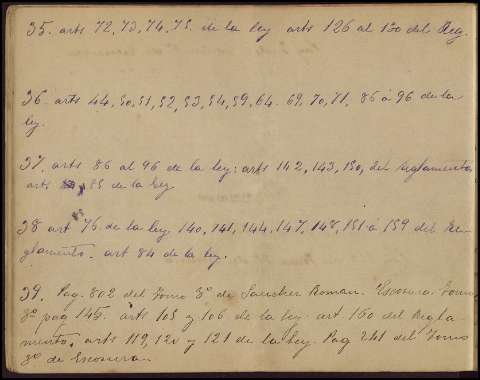 35. arts 72, 73, 74, 75. de la ley arts 126 al 130 del Reg.
36. arts 44, 50, 51, 52, 53, 54, 59, 64. 69, 70, 71, 86 á 96 de la
ley.
37. arts 86 al 96 de la ley: arts 142, 143, 150, del reglamento
arts y 85 de la ley
38 art 76 de la ley 140, 141, 144, 147, 148, 151 á 159 del Re-
glamento. art 84 de la ley.
39. Pag. 802 del Tomo 3º de Sanchez Roman. Escosura. Tomo
3º pag 145. arts 105 y 106 de la ley. art 160 del Regla-
mento, arts 119, 120 y 121 de la Ley. Pag 241 del Tomo
3º de Escosura.